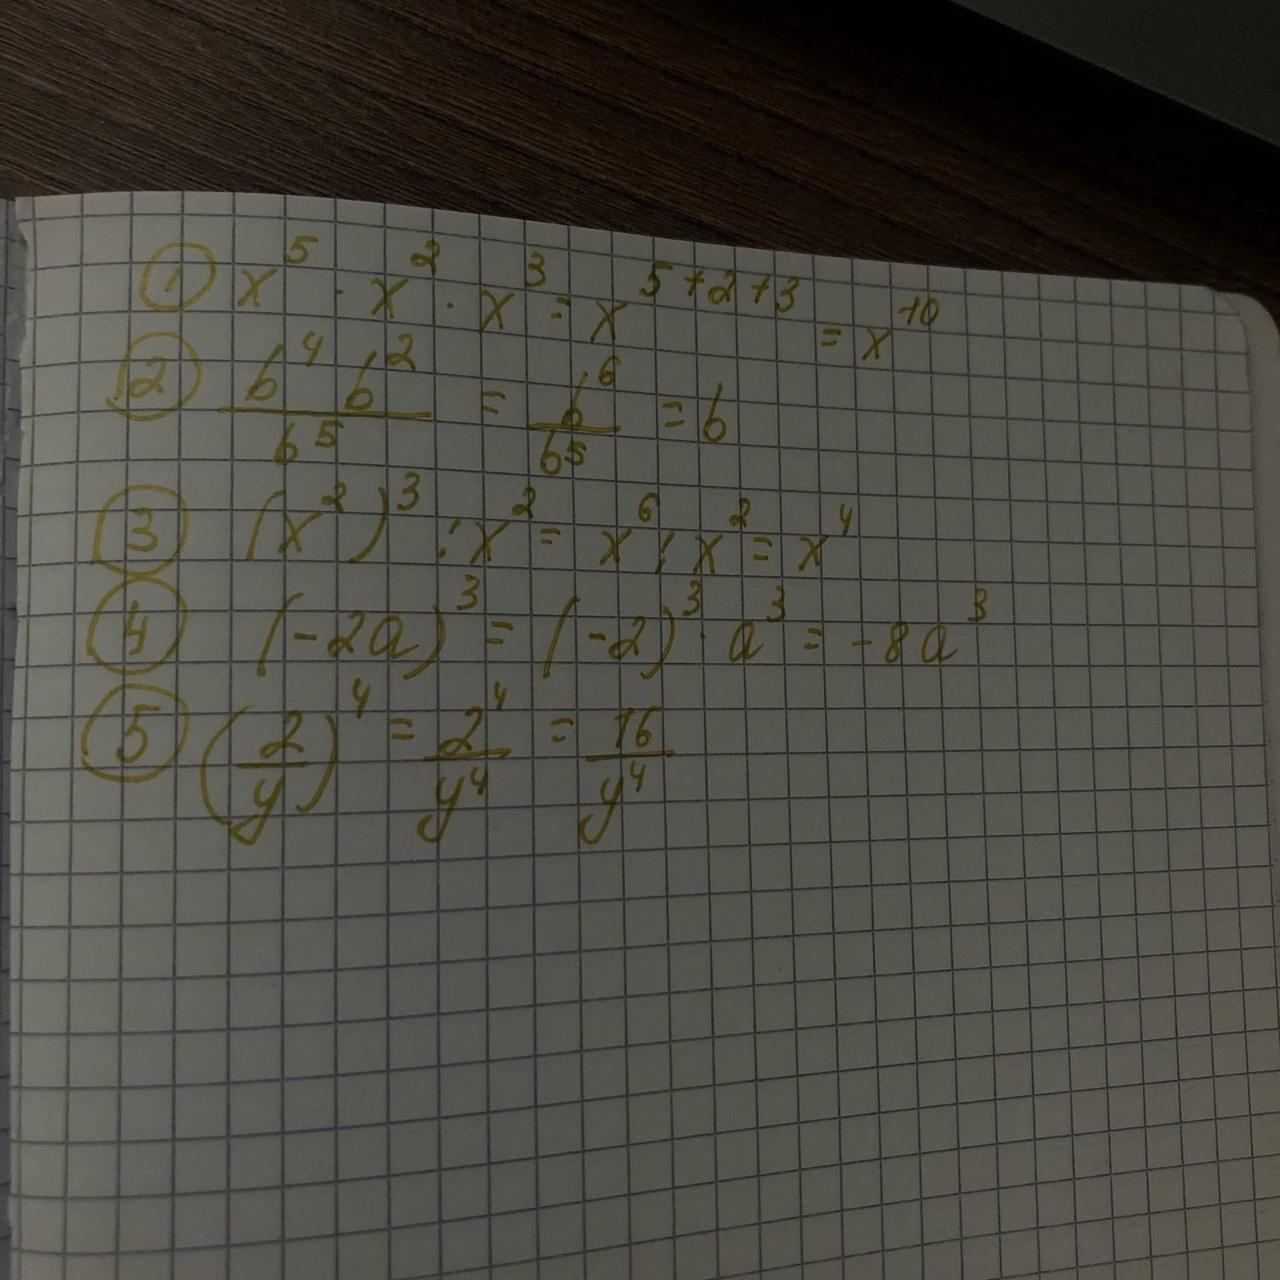 ① x⁵ · x² · x³ = x⁵⁺²⁺³ = x¹⁰
② b⁴ b² / b⁵ = b⁶ / b⁵ = b
③ (x²)³ : x² = x⁶ : x² = x⁴
④ (-2a)³ = (-2)³ · a³ = -8a³
⑤ (2/y)⁴ = 2⁴/y⁴ = 16/y⁴